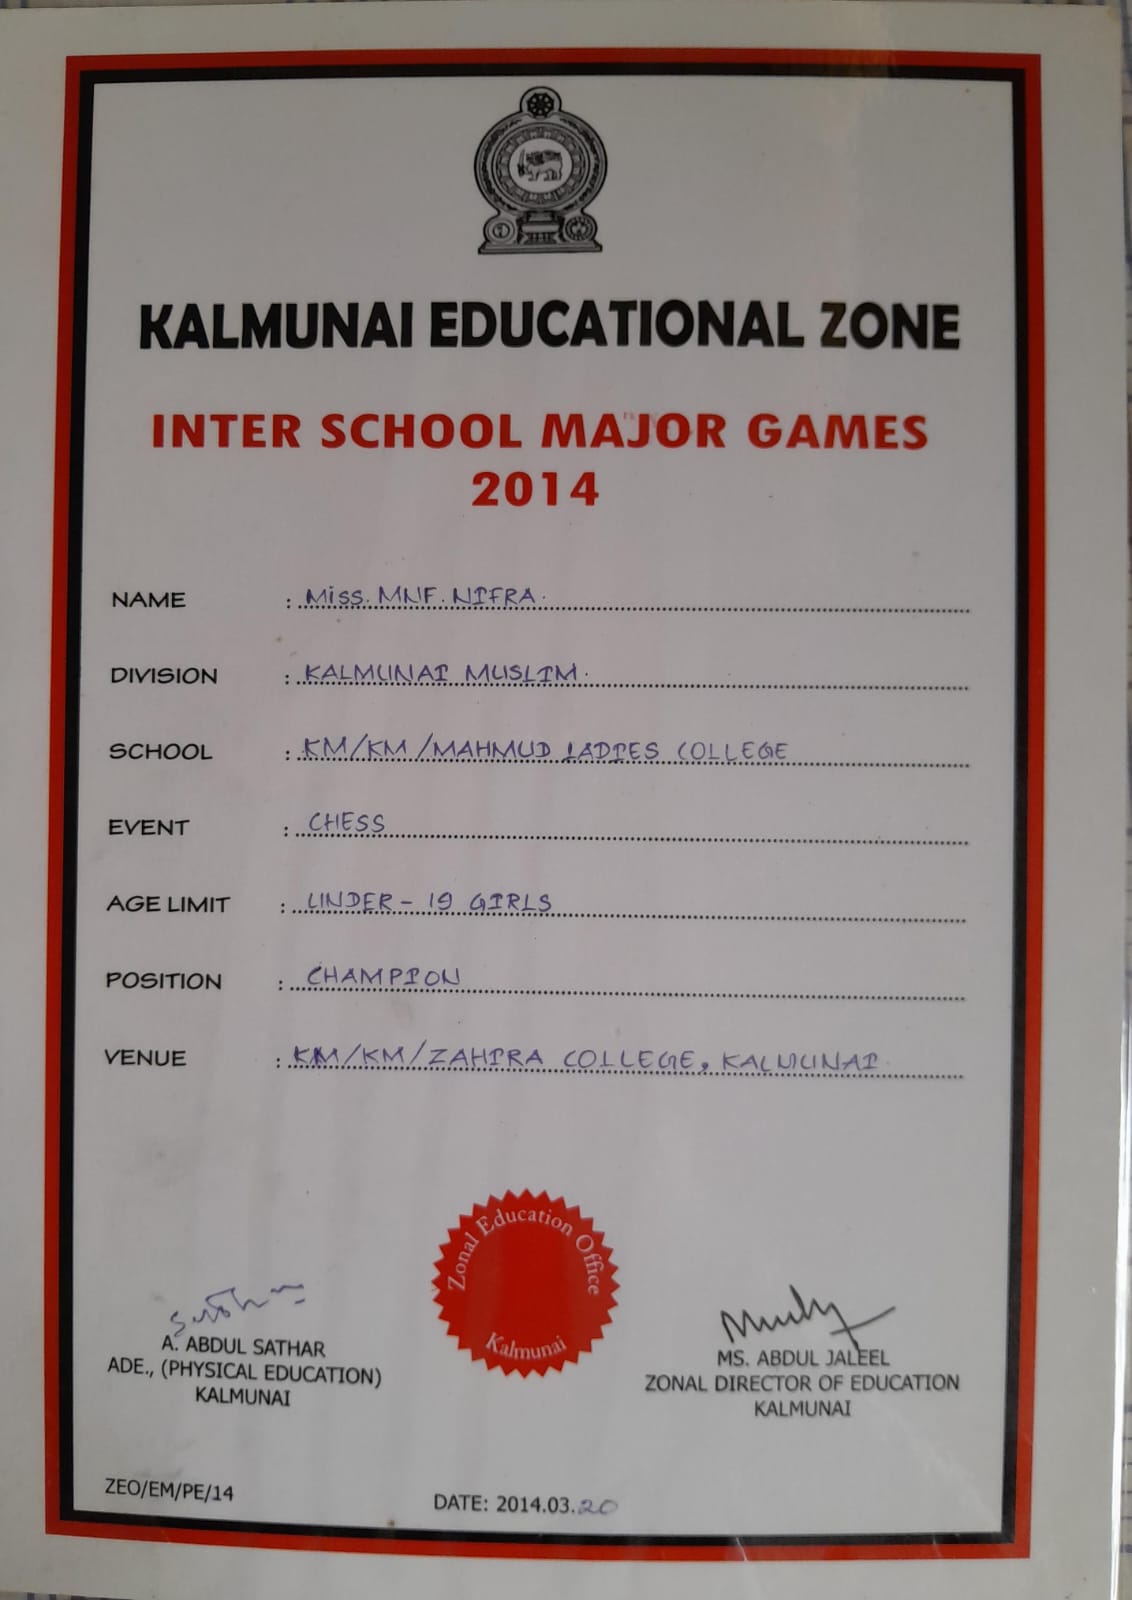 KALMUNAI EDUCATIONAL ZONE
INTER SCHOOL MAJOR GAMES
2014
NAME : Miss. MNF. NIFRA.
DIVISION : KALMUNAI MUSLIM.
SCHOOL : KM/KM/MAHMUD LADIES COLLEGE
EVENT : CHESS
AGE LIMIT : UNDER - 19 GIRLS
POSITION : CHAMPION
VENUE : KM/KM/ZAHIRA COLLEGE, KALMUNAI.
Zonal Education Office
Kalmunai
A. ABDUL SATHAR
ADE., (PHYSICAL EDUCATION)
KALMUNAI
MS. ABDUL JALEEL
ZONAL DIRECTOR OF EDUCATION
KALMUNAI
ZEO/EM/PE/14
DATE: 2014.03.20